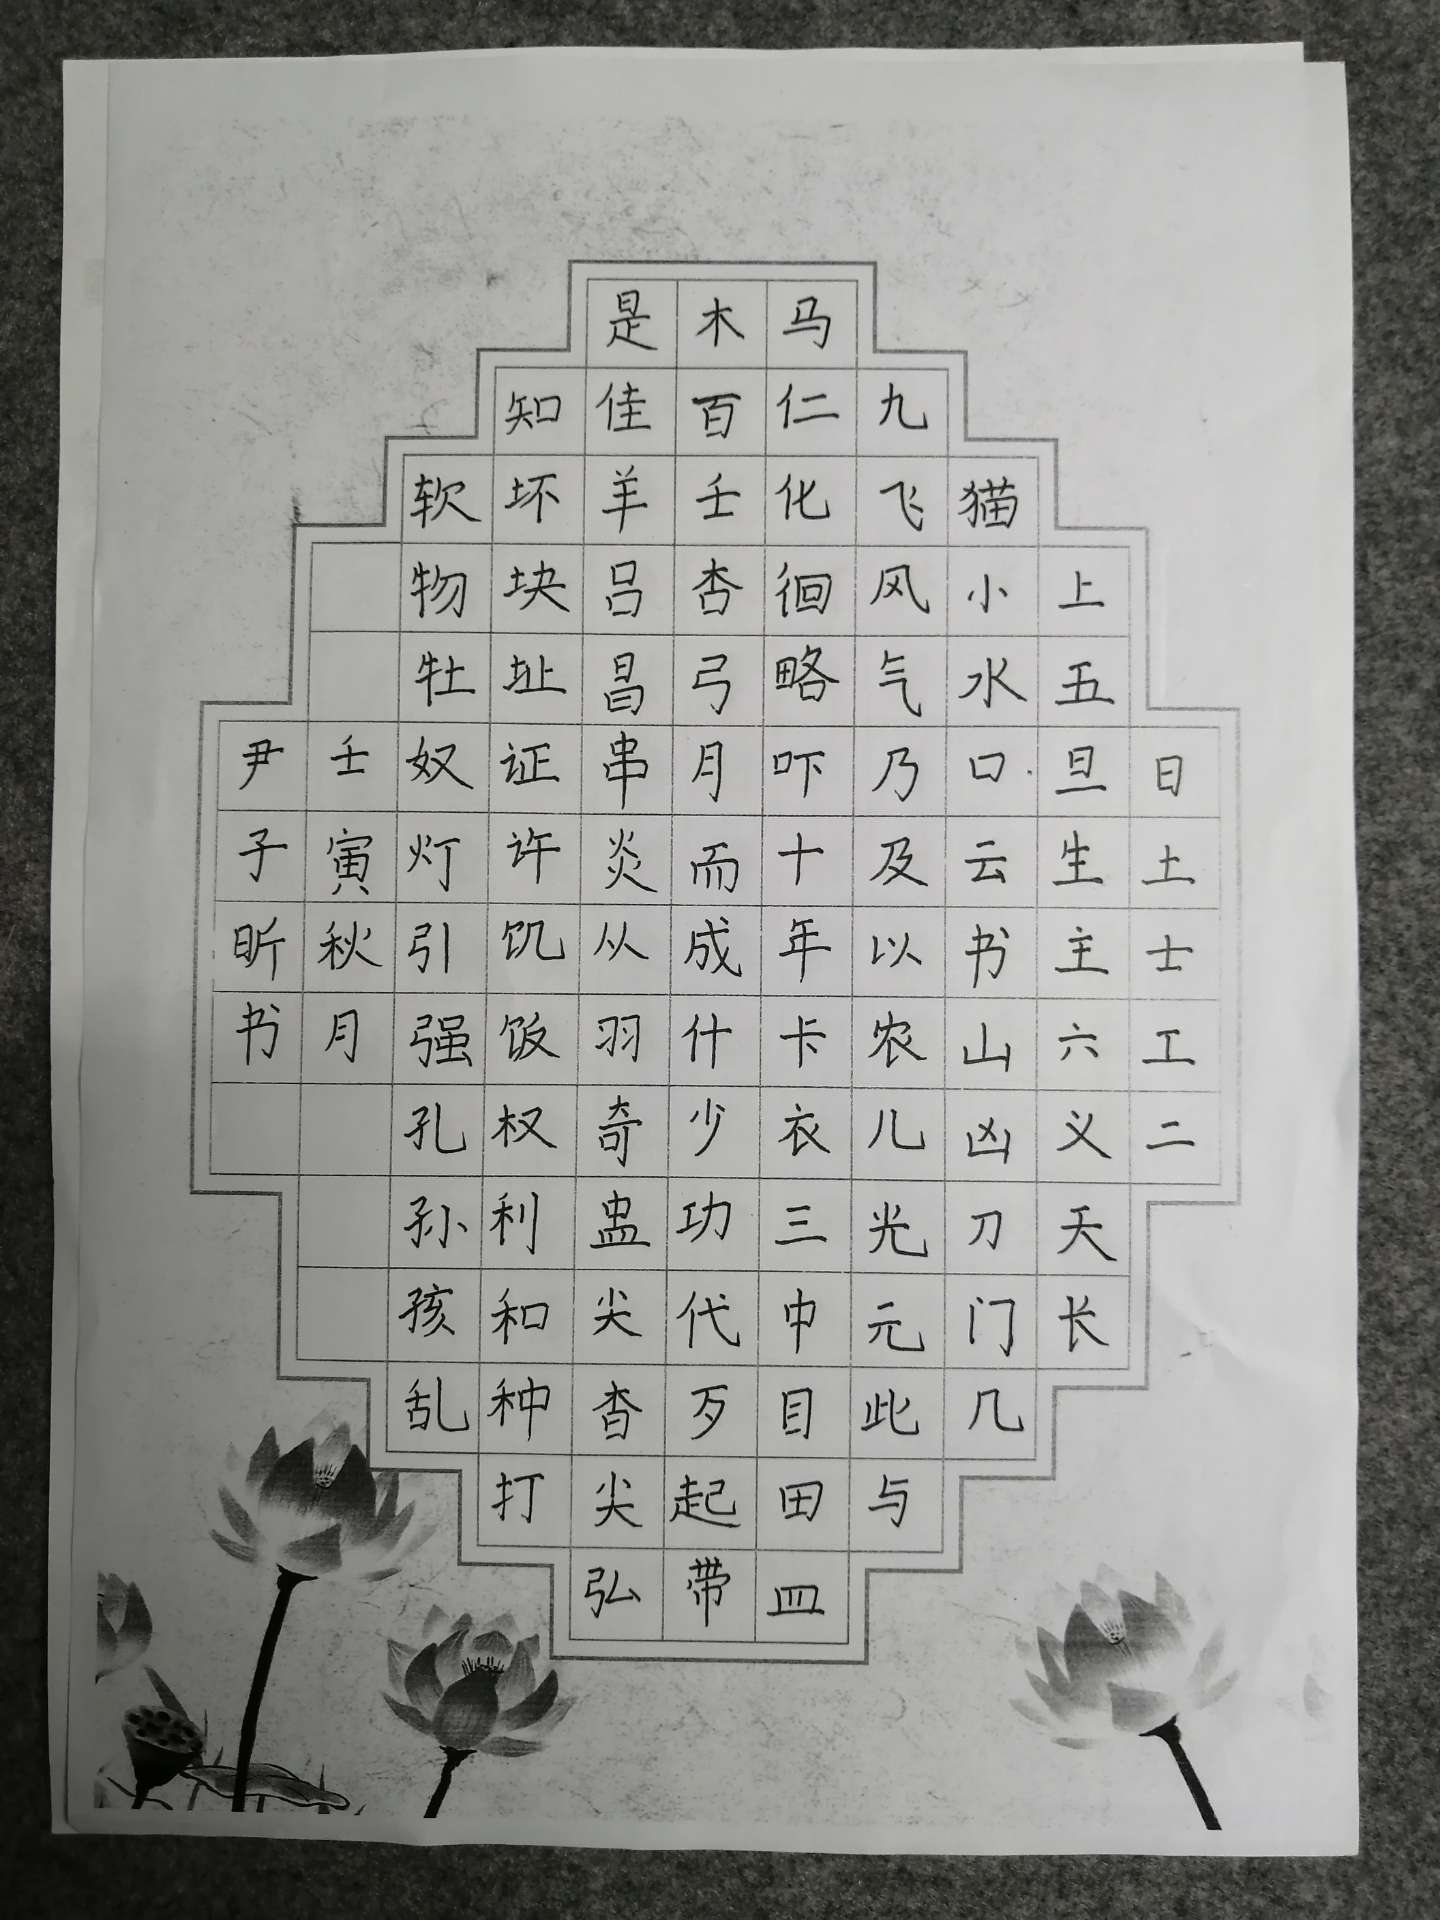 日土士工二
上五旦生主六义天长
猫小水口云书山凶刀门几
九飞风气乃及以农儿光元此与
马仁化徊略吓十年卡衣三中目田皿
木百壬杏弓月而成什少功代歹起带
是佳羊吕昌串炎从羽奇盅尖杳尖弘
知坏块址证许饥饭权利和种打
软物牡奴灯引强孔孙孩乱
壬寅秋月
尹子昕书